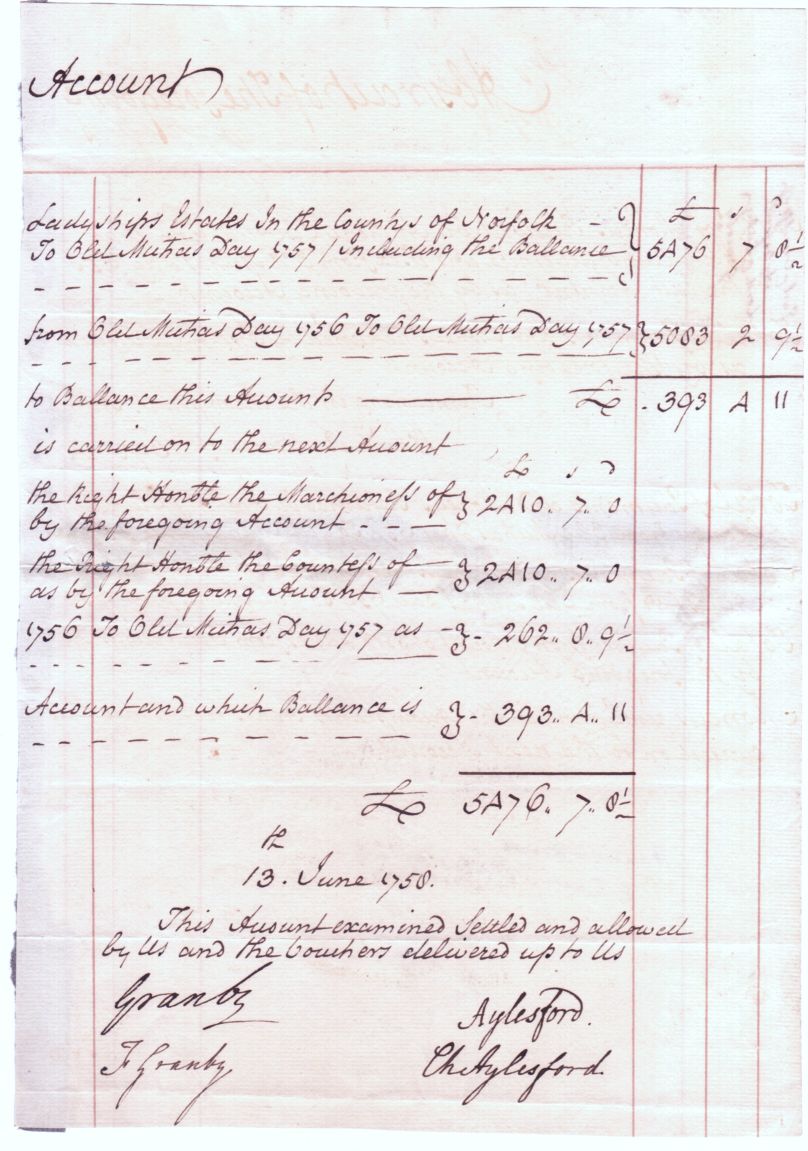 Account
£ s D
Ladyships Estates In the County of Norfolk -
To Old Michas Day 1757 / Including the Ballance } 5476 7 8½
from Old Michas Day 1756 To Old Michas Day 1757 } 5083 2 9½
to Ballance this Account £ - 393 4 11
is carried on to the next Account
£ s D
the Right Honble the Marchioness of
by the foregoing Account - - - } 2410.. 7.. 0
the Right Honble the Countess of
as by the foregoing Account — } 2410.. 7.. 0
1756 To Old Michas Day 1757 as - } - 262.. 8.. 9½
Account and which Ballance is } - 393.. 4.. 11
£ 5476.. 7.. 8½
th
13. June 1758.
This Account examined Settled and allowed
by Us and the Vouchers delivered up to Us
Granby
Aylesford.
F Granby
Ch Aylesford.